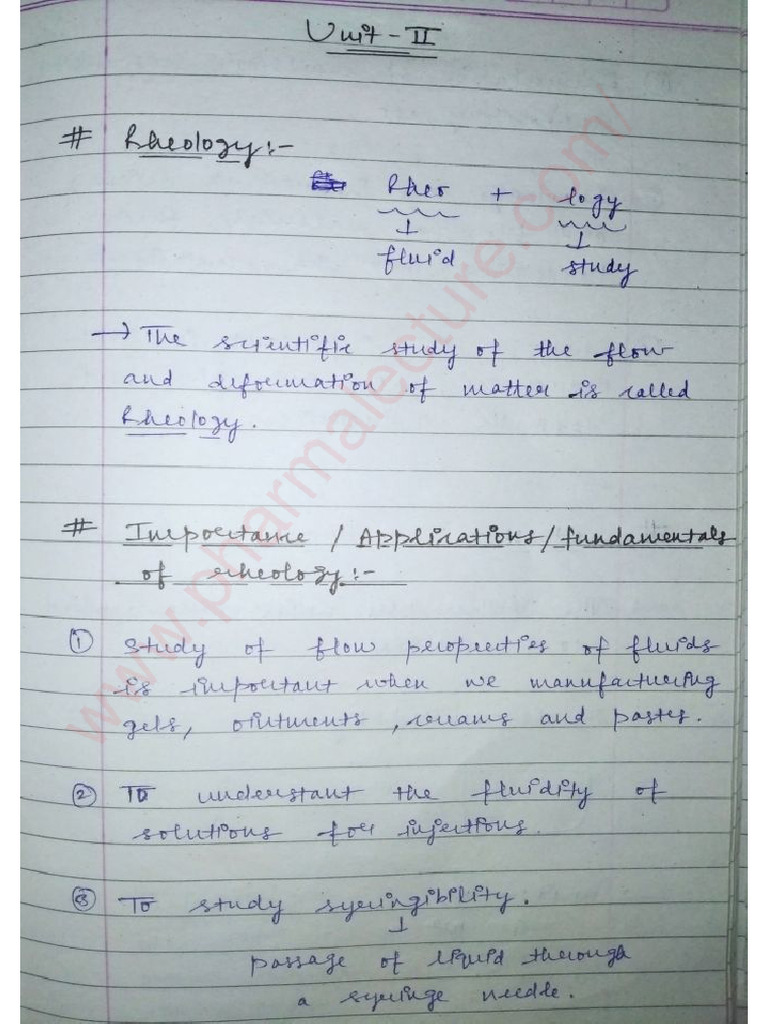 Unit - II
# Rheology:-
Rheo + logy
↓ ↓
fluid study
→ The scientific study of the flow
and deformation of matter is called
Rheology.
# Importance / Applications / fundamentals
of rheology:-
① Study of flow properties of fluids
is important when we manufacturing
gels, ointments, creams and pastes.
② To understant the fluidity of
solutions for injections.
③ To study syringibility.
↓
passage of liquid through
a syringe needle.
www.pharmalecture.com/